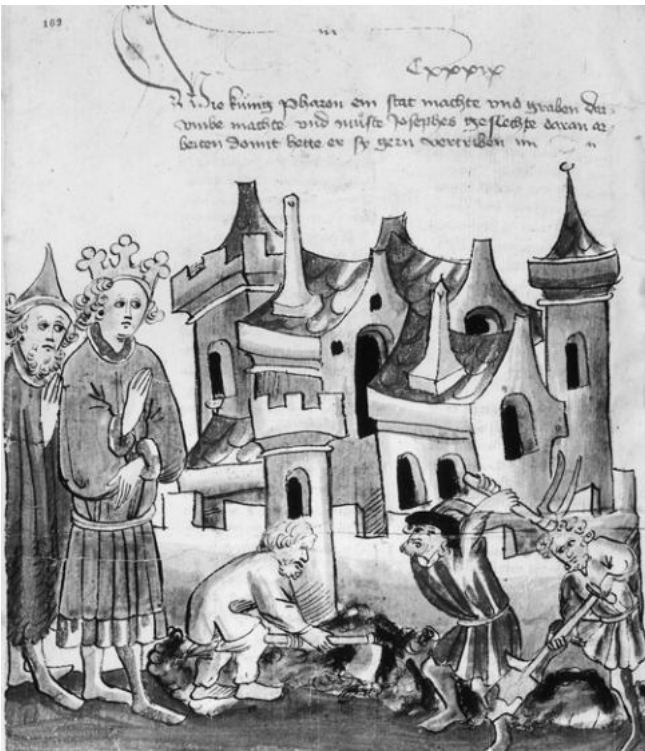 169
Cxxxix
Wie kúnig Pharon ein stat machte vnd graben dar
vmbe machte vnd muͤste Josephes geslechte daran ar
beiten domit hette er sy gern vertriben